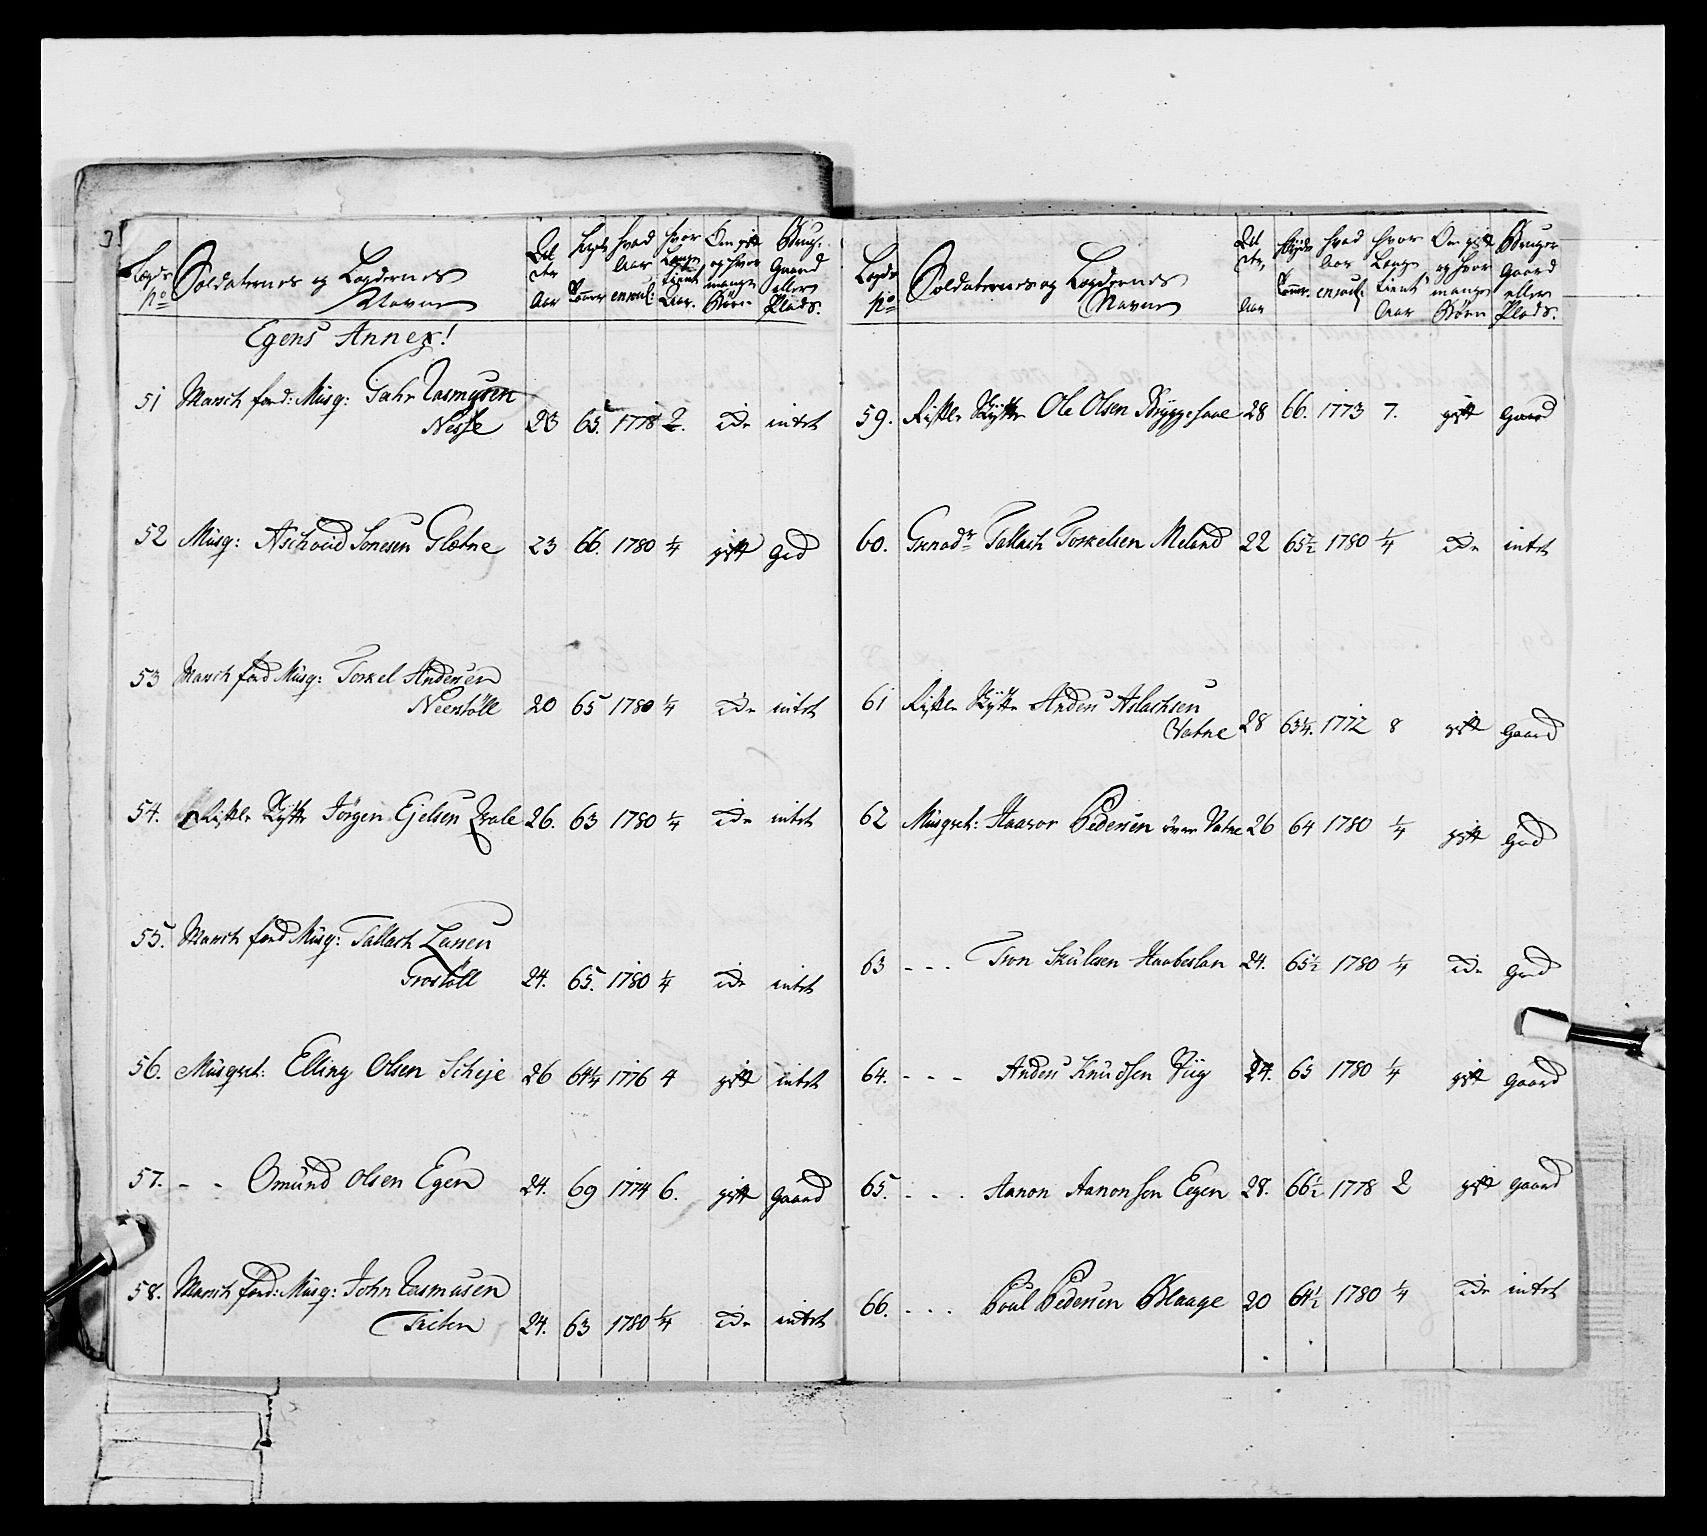 Lægds No Soldaternes og Lægdernes Navne Aar Tommer hvad Aar enroul: hvor Længe tient Aar. Om gift og hvor mange Børn Brug: Gaard eller Plads.
Egens Annex!
51 March ferd: Musq: Gahr Rasmusen
Nesse 23 65. 1778 2. Do intet
52 Musq: Aschoud Sonesen Glætne 23 66. 1780 ¼ gift grd
53 March ferd Musq: Torkel Andersen
Neenstöll 20 65 1780 ¼ Do intet
54. Rifle Skytt Jörgen Ejelsen Qvale 26. 63 1780 ¼ Do intet
55. March ferd Musq: Tallach Larsen
Grostöll 24. 65. 1780 ¼ Do intet
56. Musqset: Elling Olsen Scheje 26 64¼ 1776 4 gift intet
57. - - Omund Olsen Egen 24. 69 1774 6. gift gaard
58. March ferd: Musq: John Rasmusen
Triten 24. 63 1780 ¼ Do intet
Lægds No Soldaternes og Lægdernes Navne Aar Tommr. hvad Aar enroul: hvor Længe tient Aar Om gift og hvor mange Børn Bruger gaard eller Plads.
59. Rifle Skytte Ole Olsen Bryggesaae 28 66. 1773 7. gift gaard
60. Grenadr Tallach Torkelsen Meland 22 65½ 1780 ¼ Do intet
61 Rifle Skytte Anders Aslachsen
Vatne 28 63¼. 1772 8 gift gaard
62 Musqset: Haavor Pedersen över Vatne 26 64 1780 ¼ gift grd
63 - - - Tron Skulesen Haabeslan 24. 65½ 1780 ¼ Do grd
64. - - - Anders Knudsen Riig 24. 63 1780 ¼ gift gaard
65. - - - Aanon Aanonsen Eegen 28. 66½ 1778 2 gift gaard
66. - - - Poul Pedersen Blaage 20 64½ 1780 ¼ Do intet